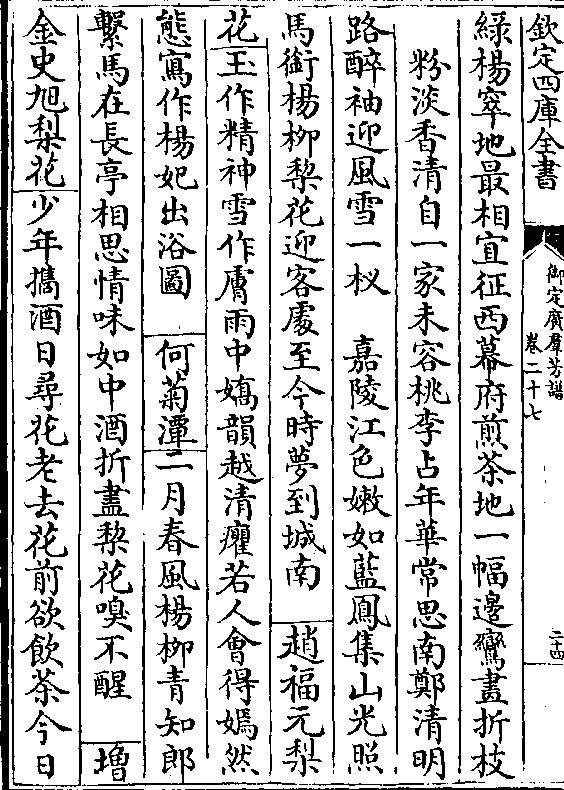 欽定四庫全書
御定廣羣芳譜
卷二十七
二十四
綠楊窣地最相宜征西幕府煎茶地一幅邊鸞畫折枝
粉淡香清自一家未容桃李占年華常思南鄭清明
路醉袖迎風雪一杈　嘉陵江色嫩如藍鳳集山光照
馬銜楊柳梨花迎客處至今時夢到城南　趙福元梨
花玉作精神雪作膚雨中嬌韻越清癯若人會得嫣然
態寫作楊妃出浴圖　何菊潭二月春風楊柳青知郎
繫馬在長亭相思情味如中酒折盡梨花嗅不醒　增
金史旭梨花少年攜酒日尋花老去花前欲飲茶今日